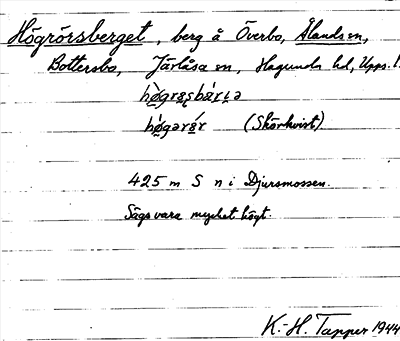 Högrörsberget, berg å Överbo, Ålands sn,
Bottersbo, Järlåsa sn, Hagunda hd, Upps. l.
(Skörkvist)
425 m S n i Djursmossen.
Sägs vara mycket högt.
K.-H. Tapper 1944